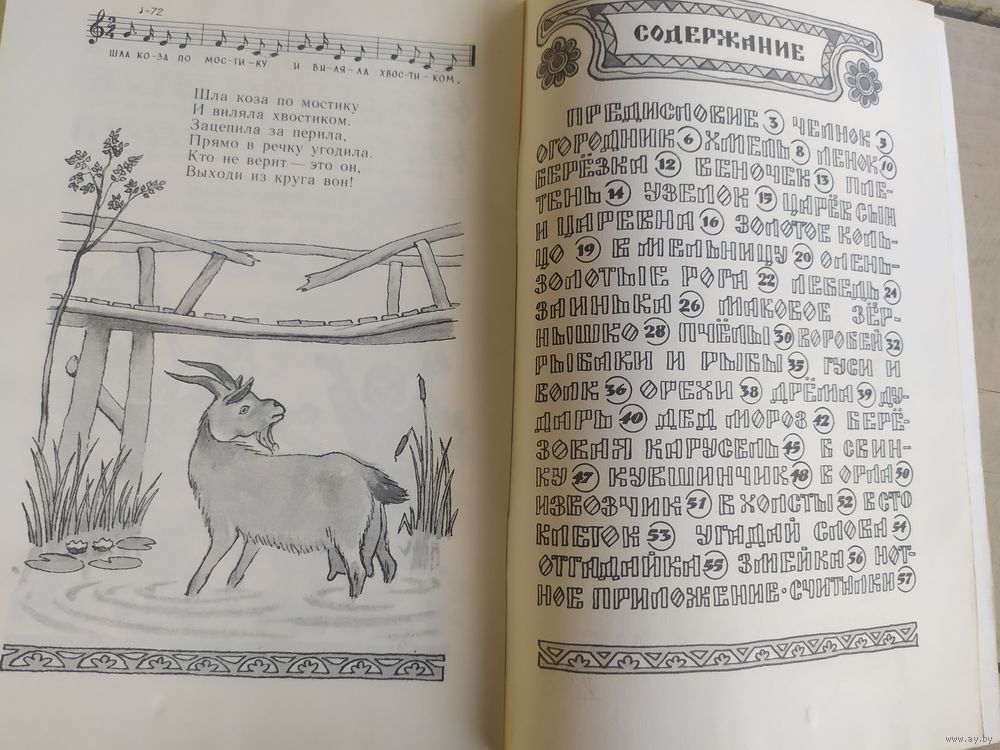 ♩=72
2 4
ШЛА КО-ЗА ПО МОС-ТИ-КУ И ВИ-ЛЯ-ЛА ХВОС-ТИ-КОМ.
Шла коза по мостику
И виляла хвостиком.
Зацепила за перила,
Прямо в речку угодила.
Кто не верит — это он,
Выходи из круга вон!
СОДЕРЖАНИЕ
ПРЕДИСЛОВИЕ 3 ЧЕЛНОК 3
ОГОРОДНИК 6 ХМЕЛЬ 8 ЛЕНОК 10
БЕРЁЗКА 12 ВЕНОЧЕК 13 ПЛЕ-
ТЕНЬ 14 УЗЕЛОК 15 ЦАРЁВ СЫН
И ЦАРЕВНА 16 ЗОЛОТОЕ КОЛЬ-
ЦО 19 В МЕЛЬНИЦУ 20 ОЛЕНЬ-
ЗОЛОТЫЕ РОГА 22 ЛЕБЕДЬ 24
ЗАИНЬКА 26 МАКОВОЕ ЗЁР-
НЫШКО 28 ПЧЁЛЫ 30 ВОРОБЕЙ 32
РЫБАКИ И РЫБЫ 35 ГУСИ И
ВОЛК 36 ОРЕХИ 38 ДРЁМА 39 ДУ-
ДАРЬ 40 ДЕД МОРОЗ 42 БЕРЁ-
ЗОВАЯ КАРУСЕЛЬ 45 В СВИН-
КУ 47 КУВШИНЧИК 48 В ОРЛА 50
ИЗВОЗЧИК 51 В ХОЛСТЫ 52 В СТО
КЛЕТОК 53 УГАДАЙ СЛОВА 54
ОТГАДАЙКА 55 ЗМЕЙКА 56 НОТ-
НОЕ ПРИЛОЖЕНИЕ · СЧИТАЛКИ 57
www.ay.by